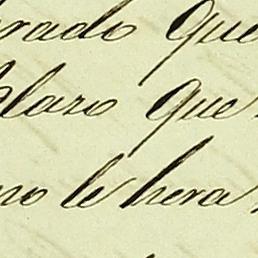 rado que
claro que
no le hera